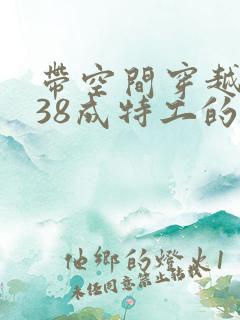 帶空間穿越
38成特工的
他鄉的燈火1
未经同意禁止转载